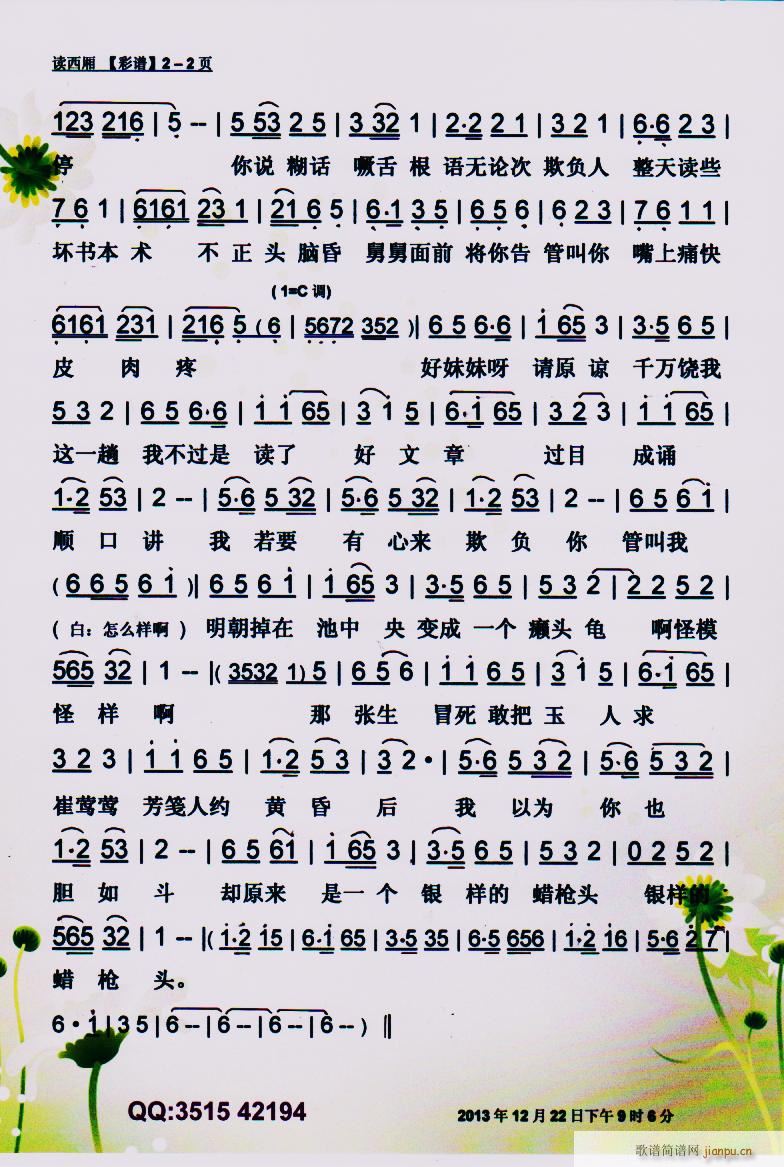 读西厢 【彩谱】2－2页
123 216 | 5 -- | 5 53 2 5 | 3 32 1 | 2·2 2 1 | 3 2 1 | 6·6 2 3 |
停 你说 糊话 嚼舌 根 语无论次 欺负人 整天读些
7 6 1 | 6161 23 1 | 21 6 5 | 6·1 3 5 | 6 5 6 | 6 2 3 | 7 6 1 1 |
坏书本 术 不 正 头 脑昏 舅舅面前 将你告 管叫你 嘴上痛快
(1=C 调)
6161 231 | 216 5 ( 6 | 5672 352 )| 6 5 6·6 | 1 65 3 | 3·5 6 5 |
皮 肉 疼 好妹妹呀 请原 谅 千万饶我
5 3 2 | 6 5 6·6 | 1 1 65 | 3 1 5 | 6·1 65 | 3 2 3 | 1 1 65 |
这一趟 我不过是 读了 好 文 章 过目 成诵
1·2 53 | 2 -- | 5·6 5 32 | 5·6 5 32 | 1·2 53 | 2 -- | 6 5 6 1 |
顺 口 讲 我 若要 有 心来 欺 负 你 管叫我
( 6 6 5 6 1 )| 6 5 6 1 | 1 65 3 | 3·5 6 5 | 5 3 2 | 2 2 5 2 |
( 白：怎么样啊 ) 明朝掉在 池中 央 变成 一个 癞头 龟 啊怪模
565 32 | 1 -- |( 3532 1) 5 | 6 5 6 | 1 1 6 5 | 3 1 5 | 6·1 65 |
怪 样 啊 那 张生 冒死 敢把 玉 人 求
3 2 3 | 1 1 6 5 | 1·2 5 3 | 3 2 · | 5·6 5 3 2 | 5·6 5 3 2 |
崔莺莺 芳笺人约 黄 昏 后 我 以为 你 也
1·2 53 | 2 -- | 6 5 61 | 1 65 3 | 3·5 6 5 | 5 3 2 | 0 2 5 2 |
胆 如 斗 却原来 是一 个 银 样的 蜡枪头 银样的
565 32 | 1 -- |( 1·2 15 | 6·1 65 | 3·5 35 | 6·5 656 | 1·2 16 | 5·6 2 7 |
蜡 枪 头。
6 · 1 | 3 5 | 6 -- | 6 -- | 6 -- | 6 -- ) ‖
QQ:3515 42194
2013 年 12 月 22 日下午 9 时 6 分
歌谱简谱网
jianpu.cn